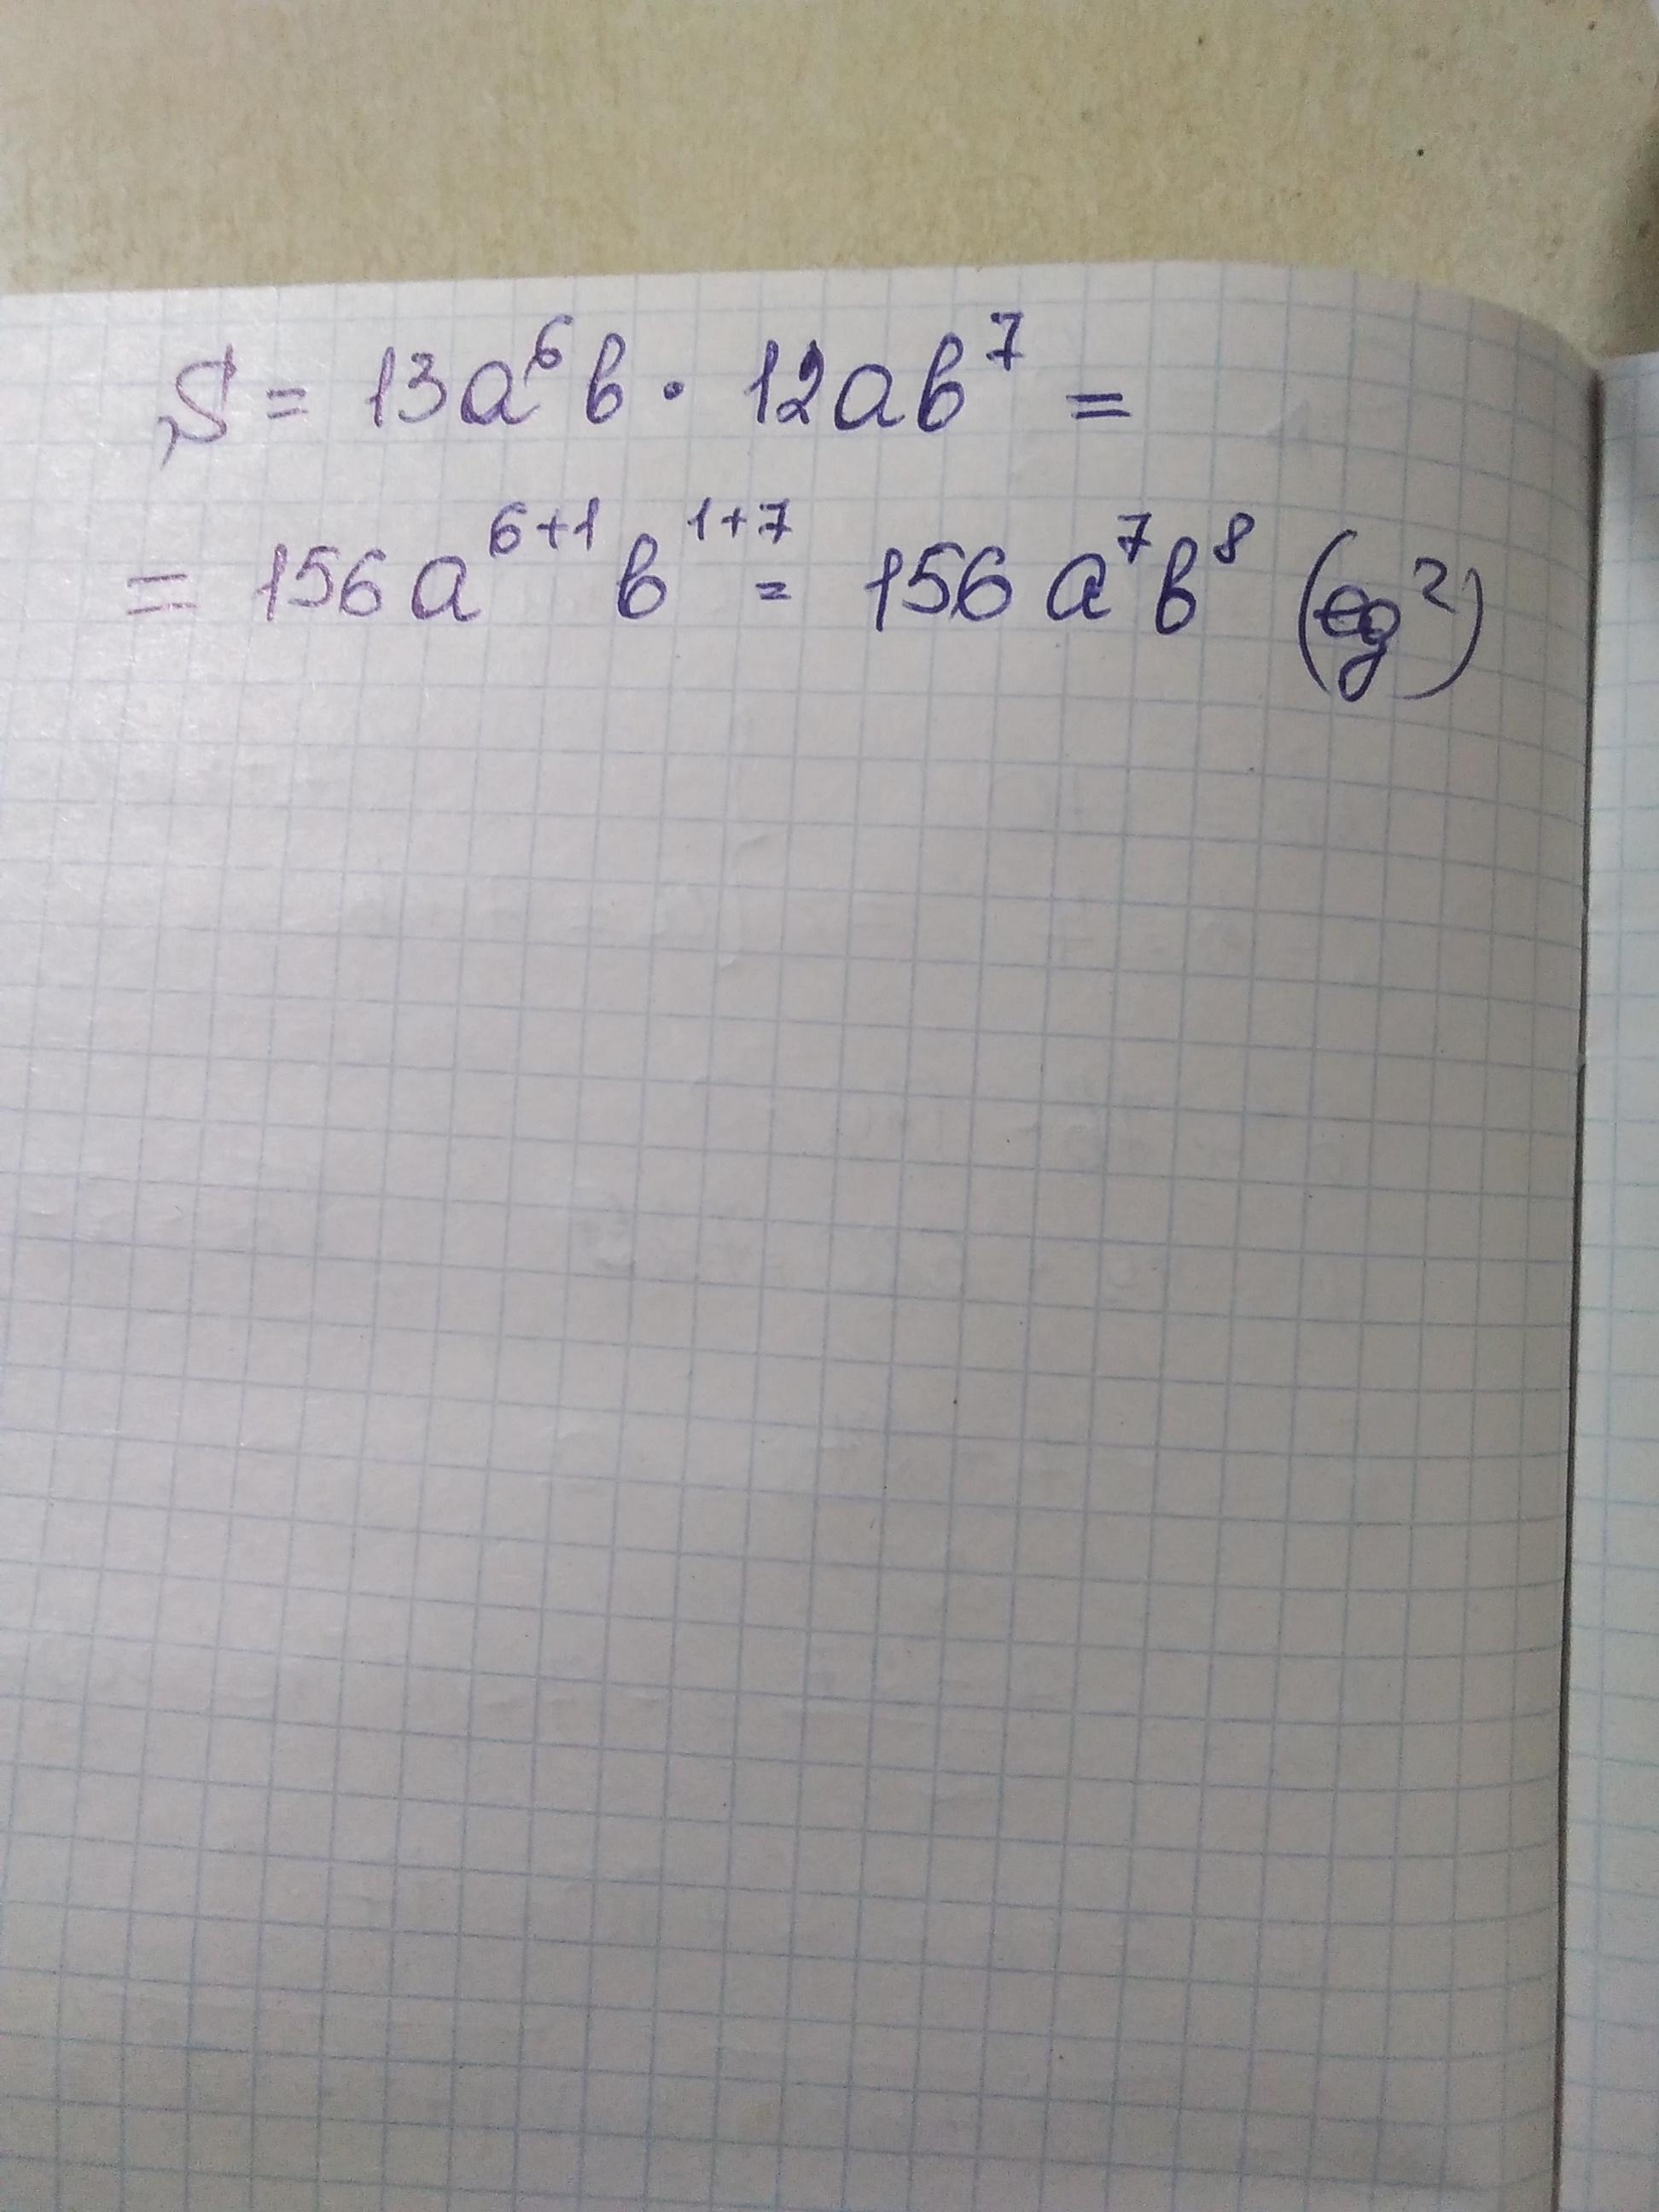 S = 13a⁶b · 12ab⁷ =
= 156a⁶⁺¹b¹⁺⁷ = 156a⁷b⁸ (ед²)